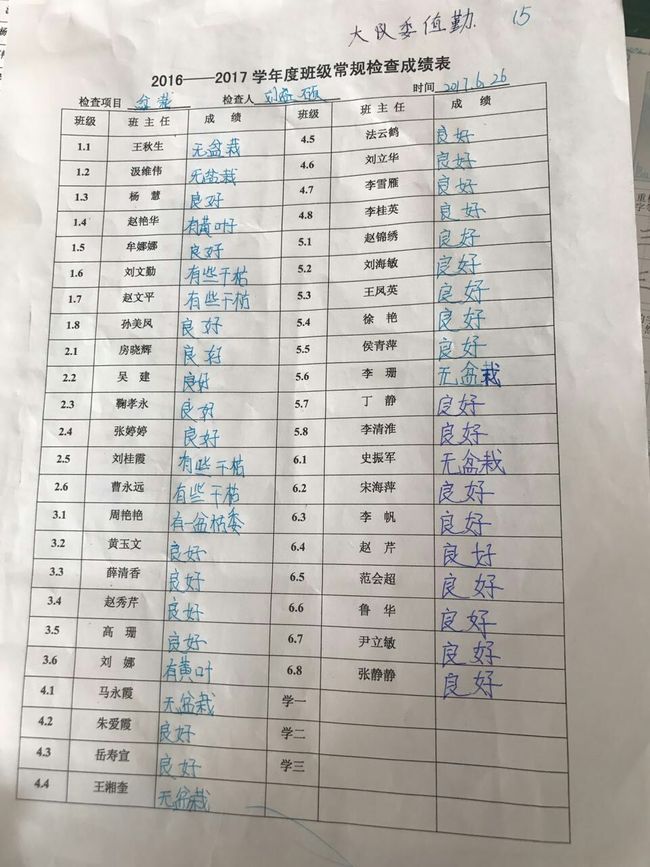 大队委值勤. 15
2016——2017学年度班级常规检查成绩表
检查项目 盆栽 检查人 时间 2017.6.26
班级 班主任 成绩 班级 班主任 成绩
1.1 王秋生 无盆栽 4.5 法云鹤 良好
1.2 汲维伟 无盆栽 4.6 刘立华 良好
1.3 杨慧 良好 4.7 李雪雁 良好
1.4 赵艳华 有黄叶子 4.8 李桂英 良好
1.5 牟娜娜 良好 5.1 赵锦绣 良好
1.6 刘文勤 有些干枯 5.2 刘海敏 良好
1.7 赵文平 有些干枯 5.3 王凤英 良好
1.8 孙美凤 良好 5.4 徐艳 良好
2.1 房晓辉 良好 5.5 侯青萍 良好
2.2 吴建 良好 5.6 李珊 无盆栽
2.3 鞠孝永 良好 5.7 丁静 良好
2.4 张婷婷 良好 5.8 李清淮 良好
2.5 刘桂霞 有些干枯 6.1 史振军 无盆栽
2.6 曹永远 有些干枯 6.2 宋海萍 良好
3.1 周艳艳 有一盆枯萎 6.3 李帆 良好
3.2 黄玉文 良好 6.4 赵芹 良好
3.3 薛清香 良好 6.5 范会超 良好
3.4 赵秀芹 良好 6.6 鲁华 良好
3.5 高珊 良好 6.7 尹立敏 良好
3.6 刘娜 有黄叶 6.8 张静静 良好
4.1 马永霞 无盆栽 学一
4.2 朱爱霞 良好 学二
4.3 岳寿宣 良好 学三
4.4 王湘奎 无盆栽